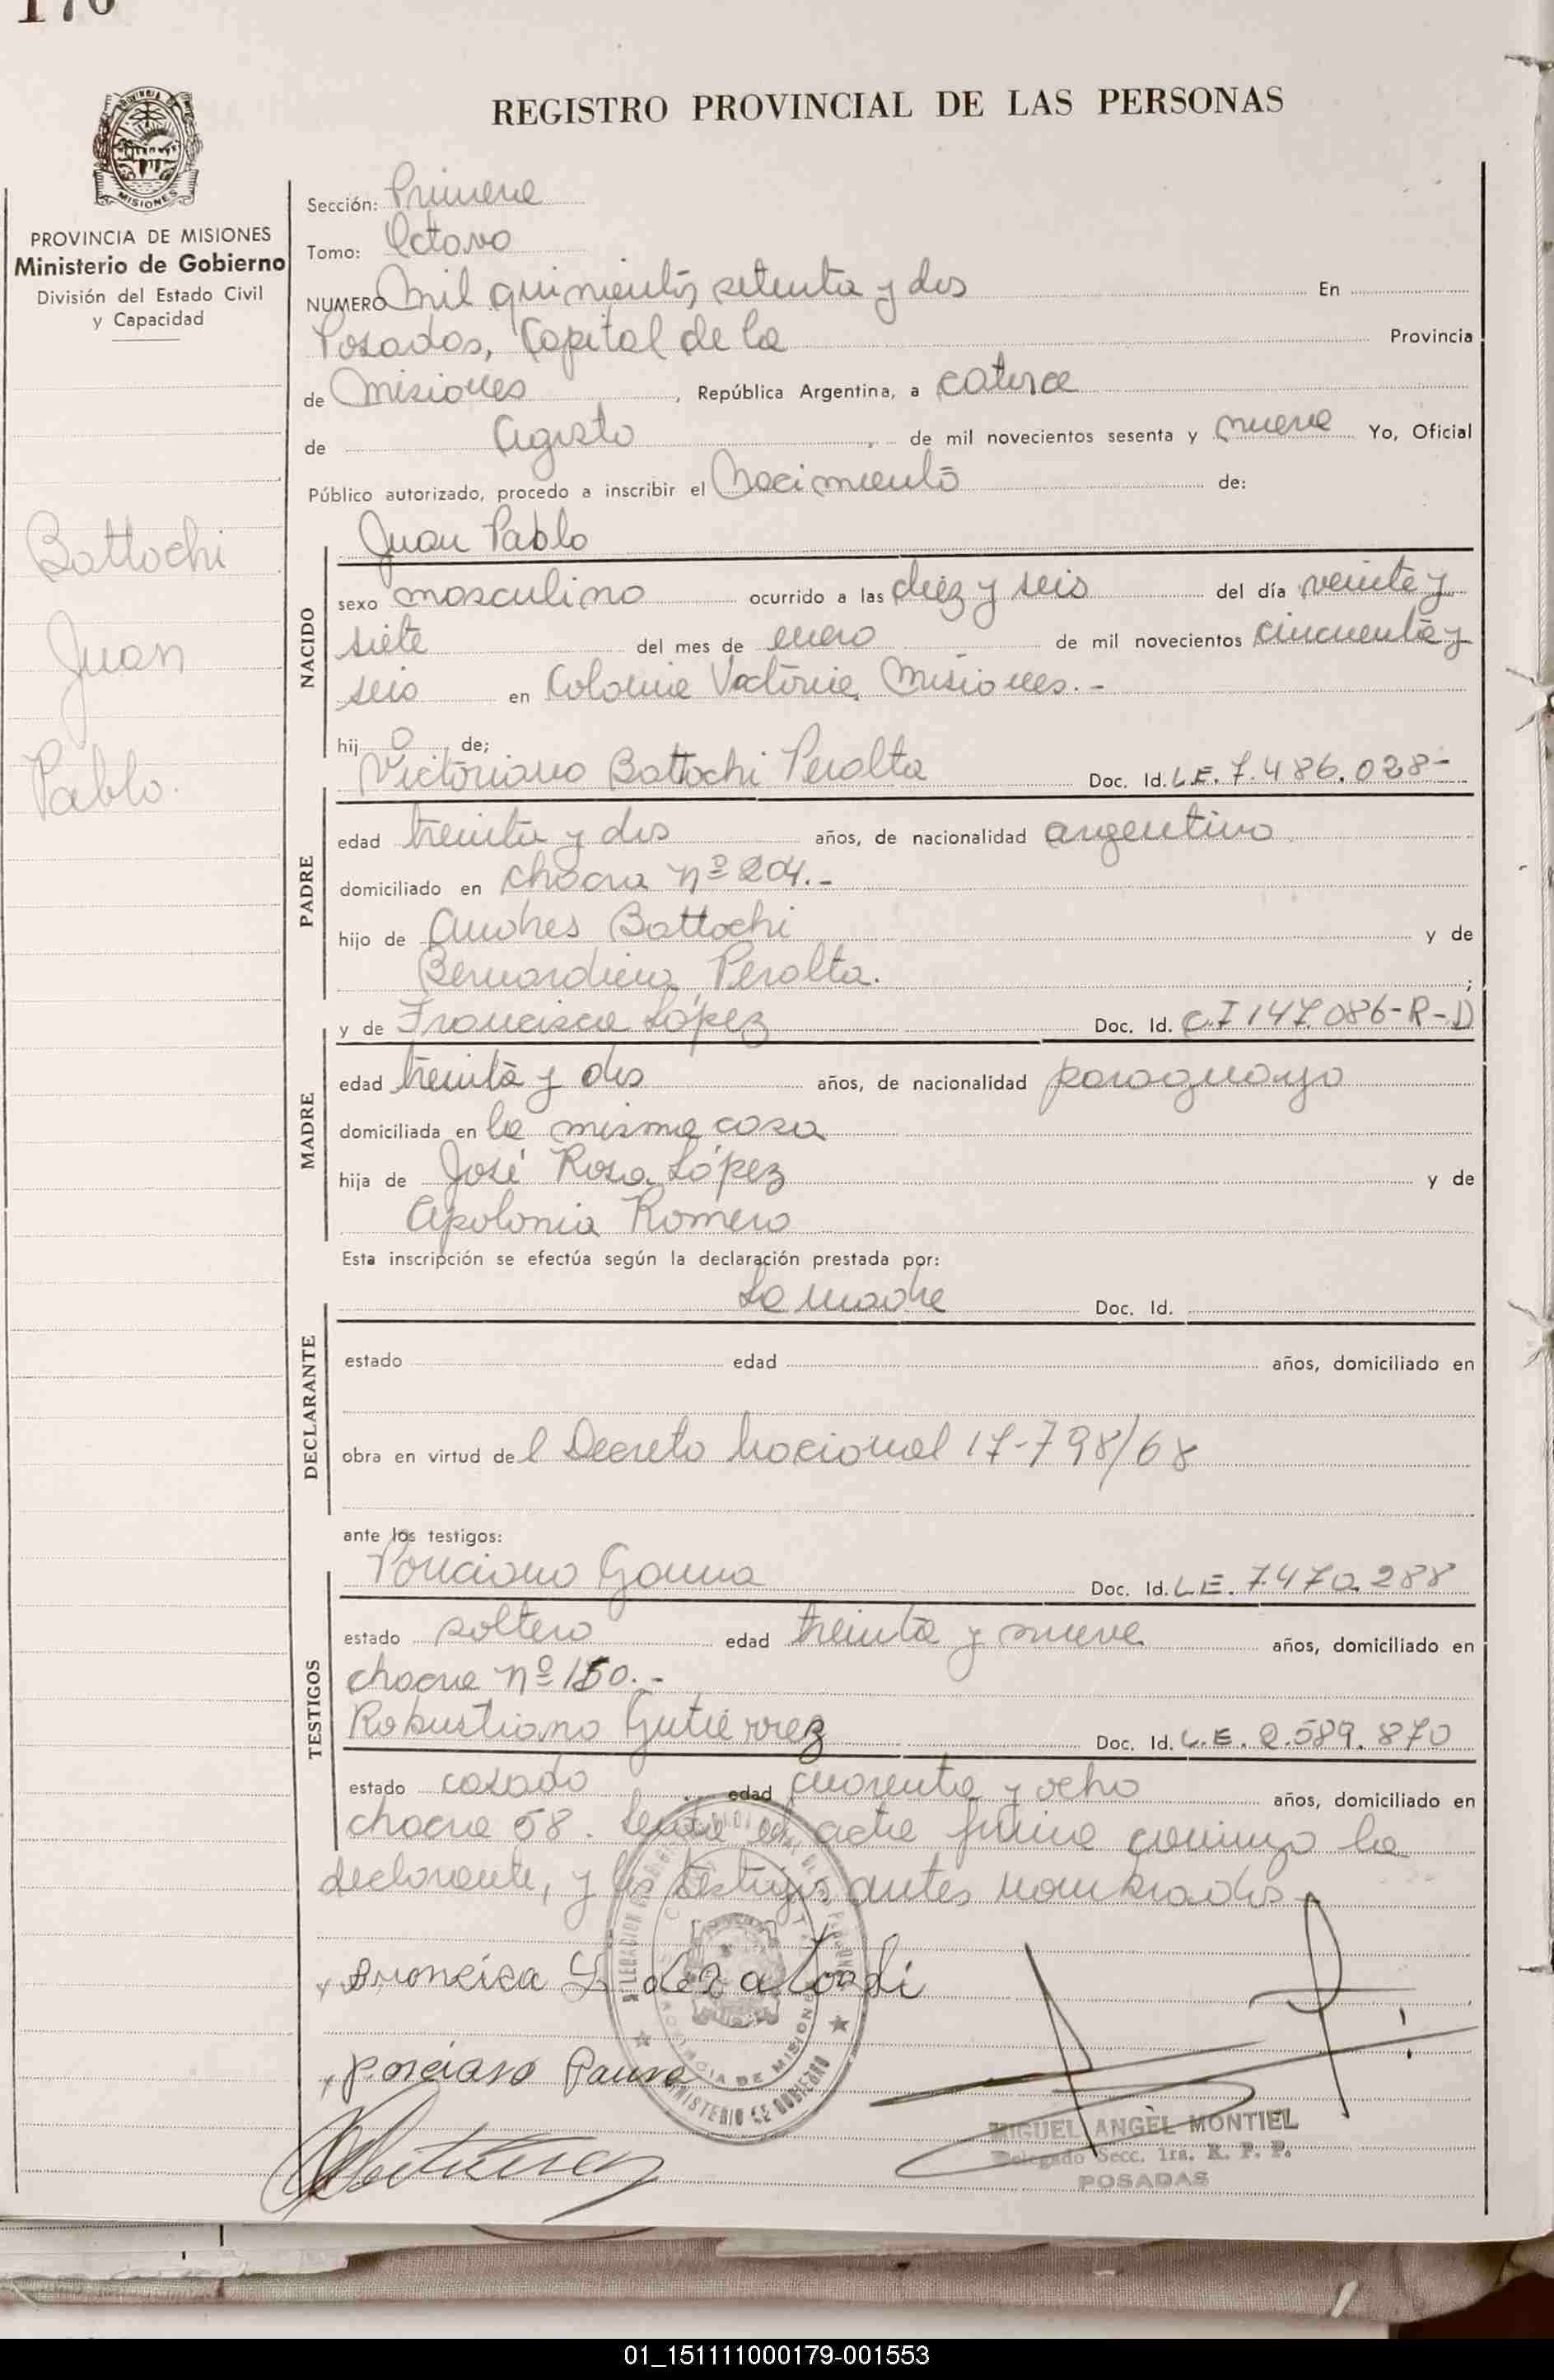 170
REGISTRO PROVINCIAL DE LAS PERSONAS
MISIONES
PROVINCIA DE MISIONES
Ministerio de Gobierno
División del Estado Civil
y Capacidad
Battochi
Juan
Pablo.
Sección: Primera
Tomo: Octavo
NUMERO Mil quinientos setenta y dos En
Posadas, Capital de la Provincia
de Misiones, República Argentina, a catorce
de Agosto, de mil novecientos sesenta y nueve Yo, Oficial
Público autorizado, procedo a inscribir el Nacimiento de:
Juan Pablo
NACIDO
sexo masculino ocurrido a las diez y seis del día veinte y
siete del mes de enero de mil novecientos cincuenta y
seis en Colonia Victoria, Misiones.-
hijo de;
Victoriano Battochi Peralta Doc. Id. L.E. 7.486.028-
PADRE
edad treinta y dos años, de nacionalidad argentino
domiciliado en chacra nº 204.-
hijo de Andres Battochi y de
Bernardina Peralta. ;
y de Francisca López Doc. Id. C.I 147.086-R-D
MADRE
edad treinta y dos años, de nacionalidad paraguaya
domiciliada en la misma casa
hija de José Rosa López y de
Apolonia Romero
Esta inscripción se efectúa según la declaración prestada por:
La madre Doc. Id.
DECLARANTE
estado edad años, domiciliado en
obra en virtud del Decreto Nacional 17-798/68
ante los testigos:
Ponciano Gauna Doc. Id. L.E. 7.470.288
TESTIGOS
estado soltero edad treinta y nueve años, domiciliado en
chacra nº 150.-
Robustiano Gutiérrez Doc. Id. L.E. 2.589.870
estado casado edad cuarenta y ocho años, domiciliado en
chacra 58. Leída el acta firma conmigo la
declarante, y los testigos antes nombrados
PROVINCIA DE MISIONES
MINISTERIO DE GOBIERNO
MIGUEL ANGEL MONTIEL
Delegado Secc. 1ra. R. P. P.
POSADAS
01_151111000179-001553